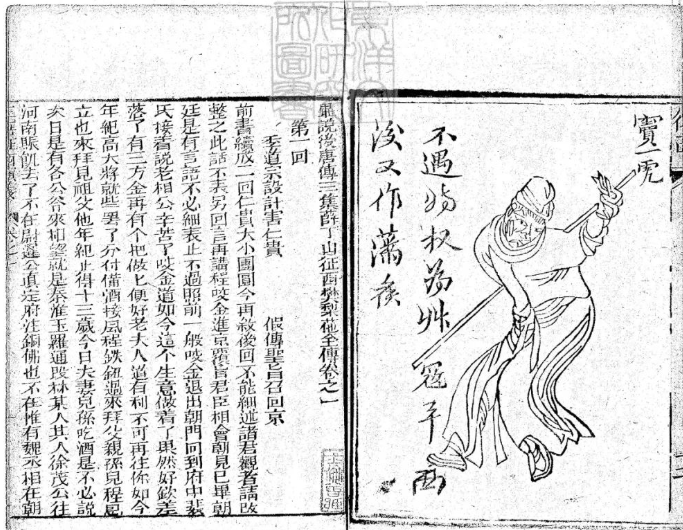 竇一虎
不遇 叔為 冠平西
後又作藩侯
異說後唐傳三集薛丁山征西樊梨花全傳卷之一
第一回
李道宗設計害仁貴 假傳聖旨召回京
前書續成一回仁貴大小團圓今再敘後回不能細述諸君觀者請改
整之此話不表另回言再講程咬金進京覆旨君臣相會朝見已畢朝
廷是有言語不必細表止不過照前一般咬金退出朝門回到府中裴
氏接着說老相公辛苦了咬金道如今這个生意做着了果然好欽差
落了有三万金再有个把做匕便好老夫人道有利不可再往你如今
年紀高大將就些罷了分付備酒接風程鉄鈕過來拜父親孫兒程尼
立也來拜見祖父他年紀止得十三歲今日夫妻兒孫吃酒是不必說
次日是有各公爷來相望就是秦淮玉羅通段林某人其人徐茂公往
河南賑飢去了不在尉遲公真定府注銅佛也不在惟有魏丞相在朝